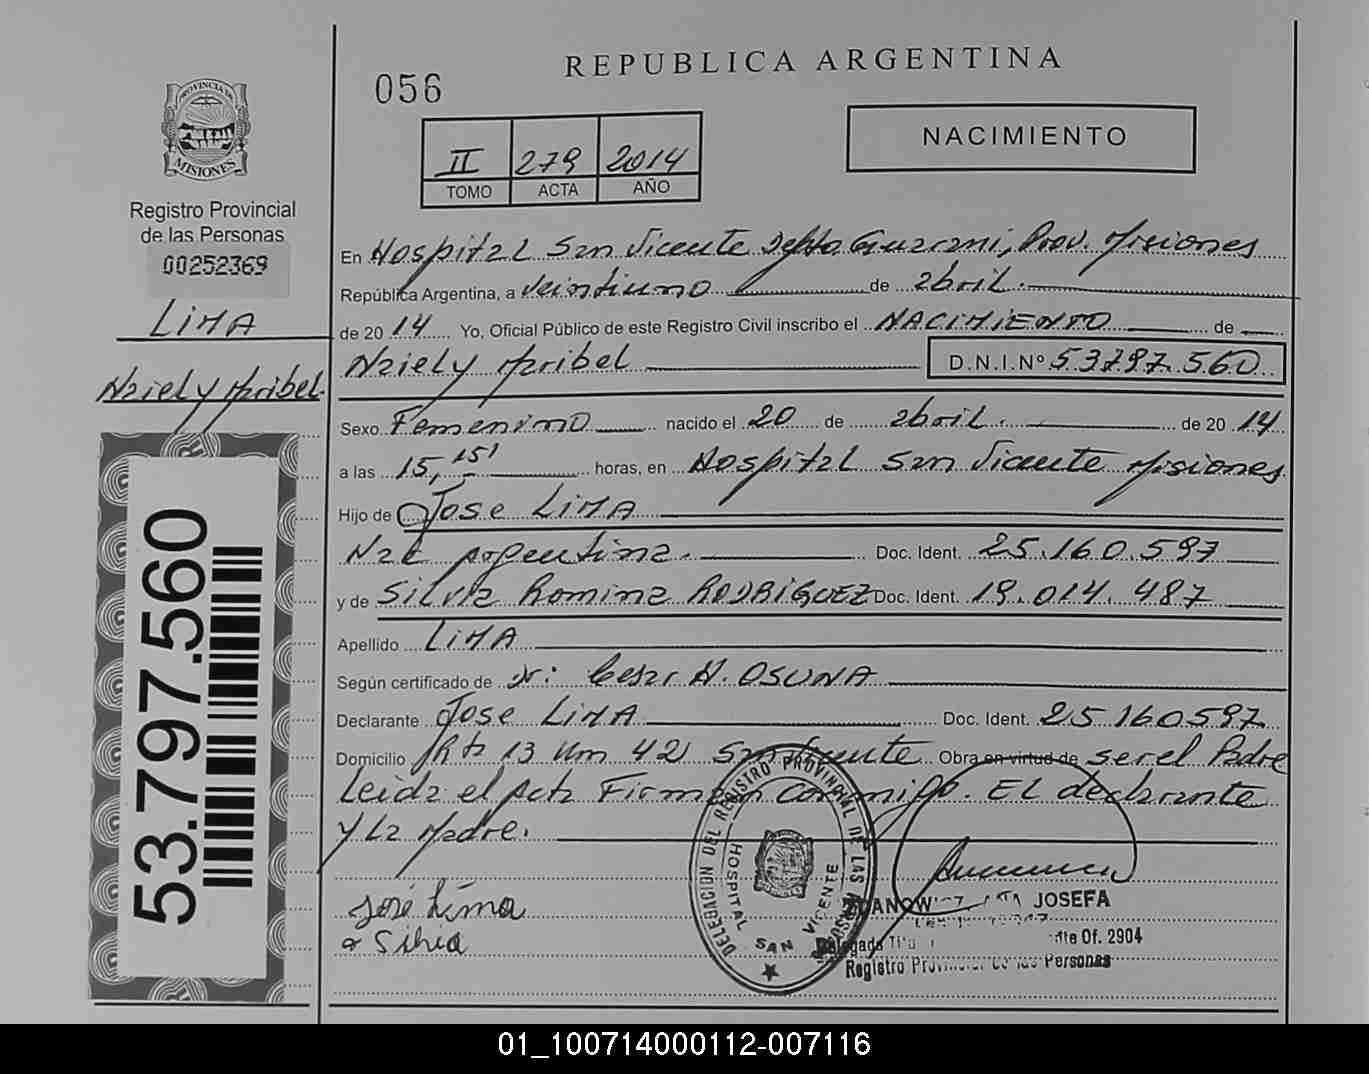 REPUBLICA ARGENTINA
056
NACIMIENTO
II 279 2014
TOMO ACTA AÑO
PROVINCIA DE
MISIONES
Registro Provincial
de las Personas
00252369
LIMA
Naiely Maribel
53.797.560
En Hospital San Vicente Depto. Guarani, Prov. Misiones
República Argentina, a veintiuno de abril.
de 2014 Yo, Oficial Público de este Registro Civil inscribo el NACIMIENTO de
Naiely Maribel D.N.I.Nº 53.797.560
Sexo Femenino nacido el 20 de abril. de 2014
a las 15,15' horas, en Hospital San Vicente Misiones
Hijo de Jose LIMA
Nac argentina. Doc. Ident. 25.160.597
y de Silvia Romina RODRIGUEZ Doc. Ident. 19.014.487
Apellido LIMA
Según certificado de Dr: Cesar H. OSUNA
Declarante Jose LIMA Doc. Ident. 25160597
Domicilio Rta 13 Km 42 San Vicente Obra en virtud de ser el Padre
Leida el acta Firman conmigo. EL declarante
y La Madre.
José Lima
Silvia
DELEGACION DEL REGISTRO PROVINCIAL DE LAS PERSONAS
HOSPITAL SAN VICENTE
JOSEFA
Delegada Of. 2904
Registro Provincial de las Personas
01_100714000112-007116